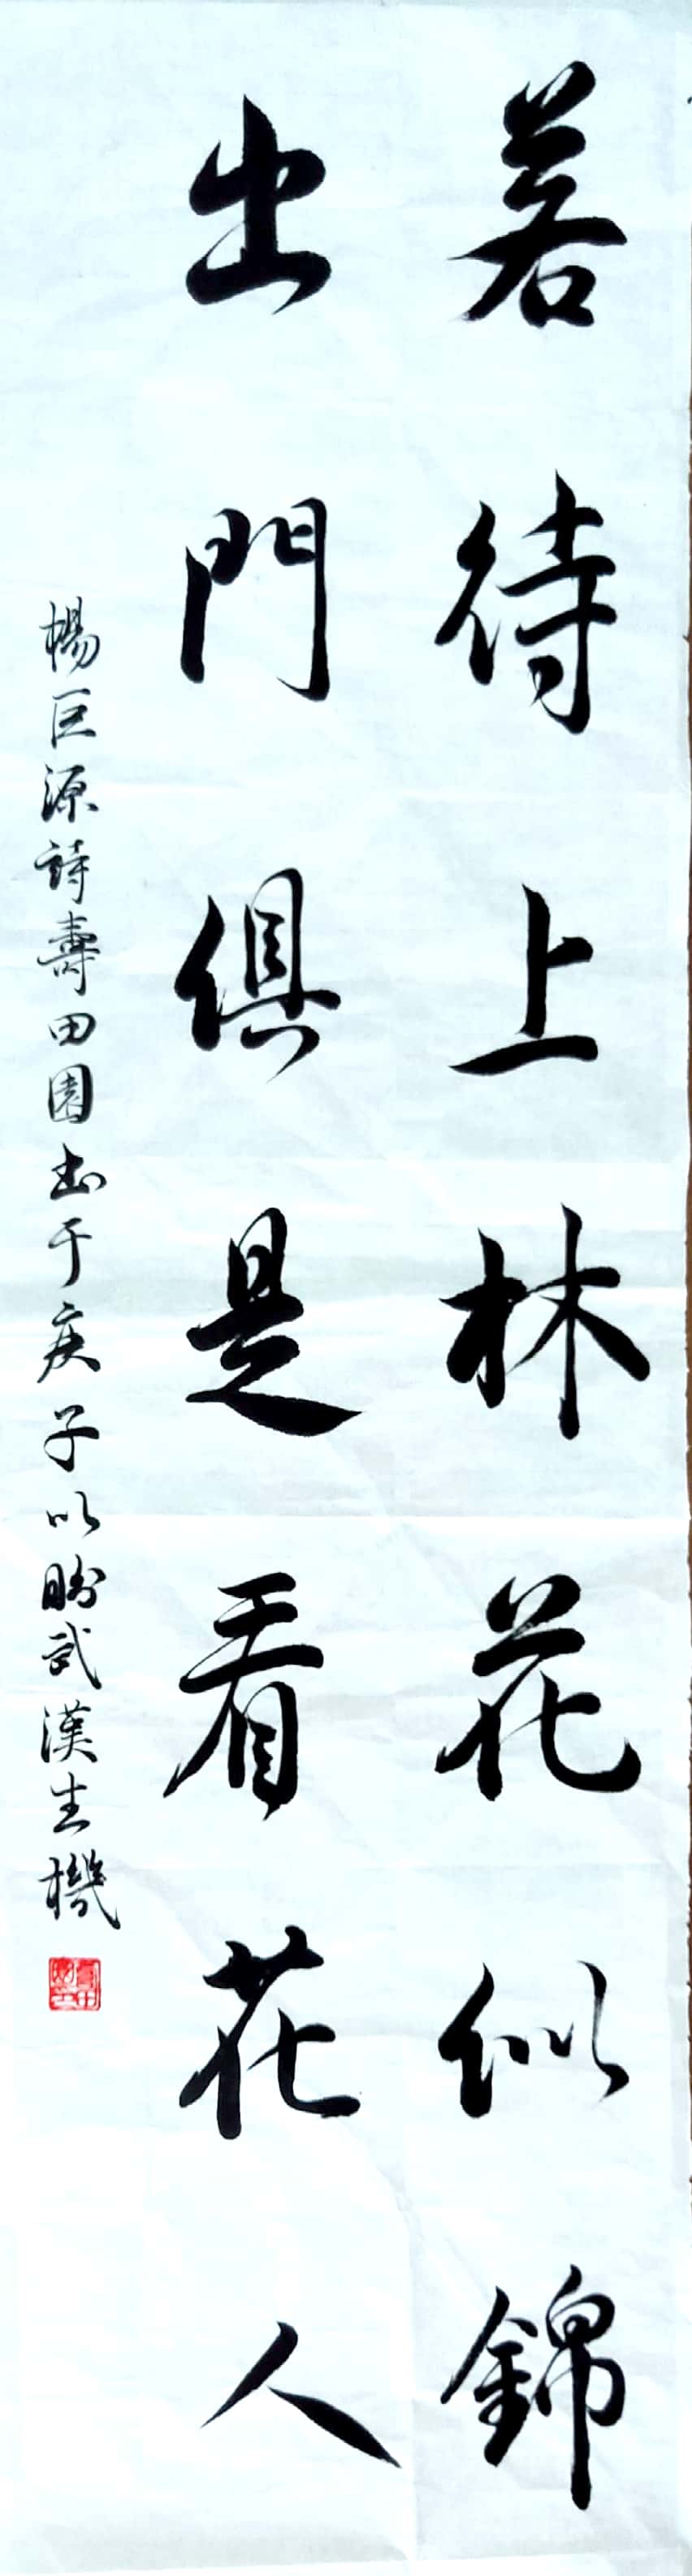 若待上林花似錦
出門俱是看花人
楊巨源詩壽田園書于庚子以盼武漢生機